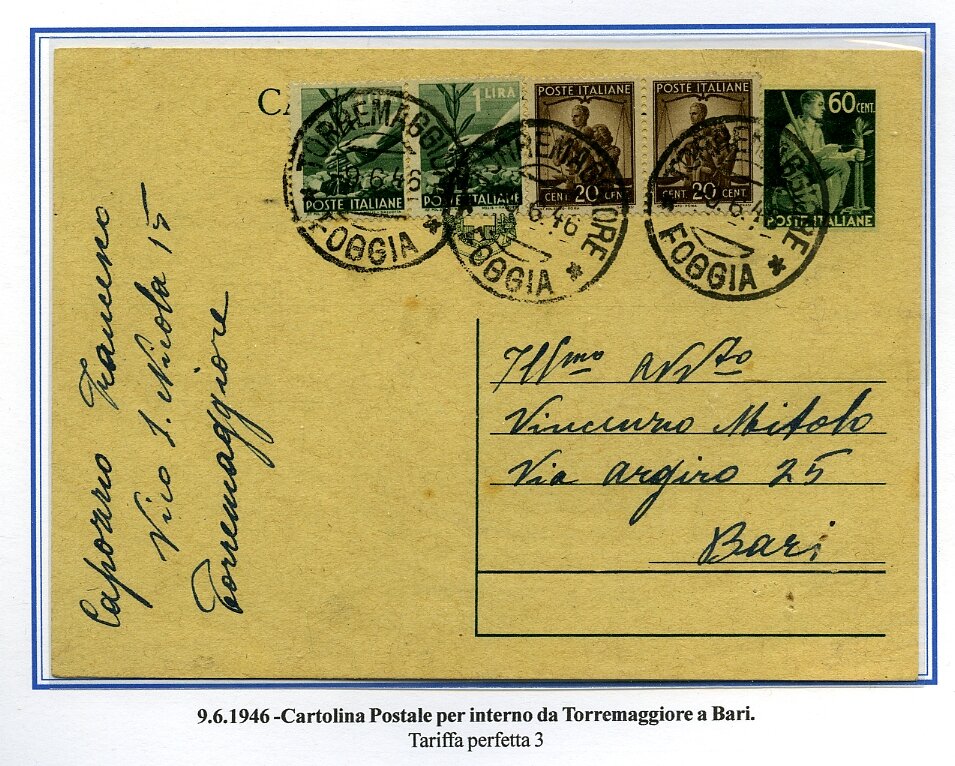 CA
1 LIRA
POSTE ITALIANE
POSTE ITALIANE
POSTE ITALIANE
CENT. 20 CENT.
POSTE ITALIANE
CENT. 20 CENT.
60 CENT.
POSTE ITALIANE
TORREMAGGIORE
9.6.46
FOGGIA *
TORREMAGGIORE
9.6.46
FOGGIA *
TORREMAGGIORE
9.6.46
FOGGIA *
Caporrio Francesco
Vico S. Nicola 15
Torremaggiore
Ill/mo Avv/to
Vincenzo Mitolo
Via Argiro 25
Bari
9.6.1946 -Cartolina Postale per interno da Torremaggiore a Bari.
Tariffa perfetta 3